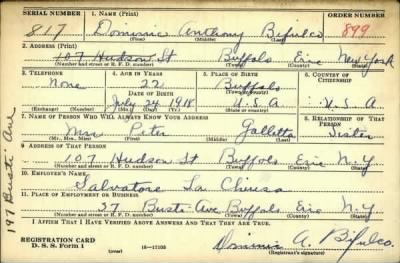 SERIAL NUMBER 1. NAME (Print) ORDER NUMBER
817 Dominic Anthony Bifulco 899
(First) (Middle) (Last)
2. ADDRESS (Print)
107 Hudson St Buffalo Erie New York
(Number and street or R. F. D. number) (Town) (County) (State)
3. TELEPHONE 4. AGE IN YEARS 5. PLACE OF BIRTH 6. COUNTRY OF CITIZENSHIP
None 22 Buffalo
DATE OF BIRTH (Town or county)
July 24 1918 U.S.A U.S.A
(Exchange) (Number) (Mo.) (Day) (Yr.) (State or country)
7. NAME OF PERSON WHO WILL ALWAYS KNOW YOUR ADDRESS 8. RELATIONSHIP OF THAT PERSON
Mrs Peter Galletto Sister
(Mr., Mrs., Miss) (First) (Middle) (Last)
9. ADDRESS OF THAT PERSON
107 Hudson St Buffalo Erie N.Y
(Number and street or R. F. D. number) (Town) (County) (State)
10. EMPLOYER'S NAME
Salvatore La Chiusa
11. PLACE OF EMPLOYMENT OR BUSINESS
37 Busti Ave Buffalo Erie N.Y
(Number and street or R. F. D. number) (Town) (County) (State)
I AFFIRM THAT I HAVE VERIFIED ABOVE ANSWERS AND THAT THEY ARE TRUE.
REGISTRATION CARD
D. S. S. Form 1 (over) 16—17105 Dominic A. Bifulco.
(Registrant's signature)
197 Busti Ave